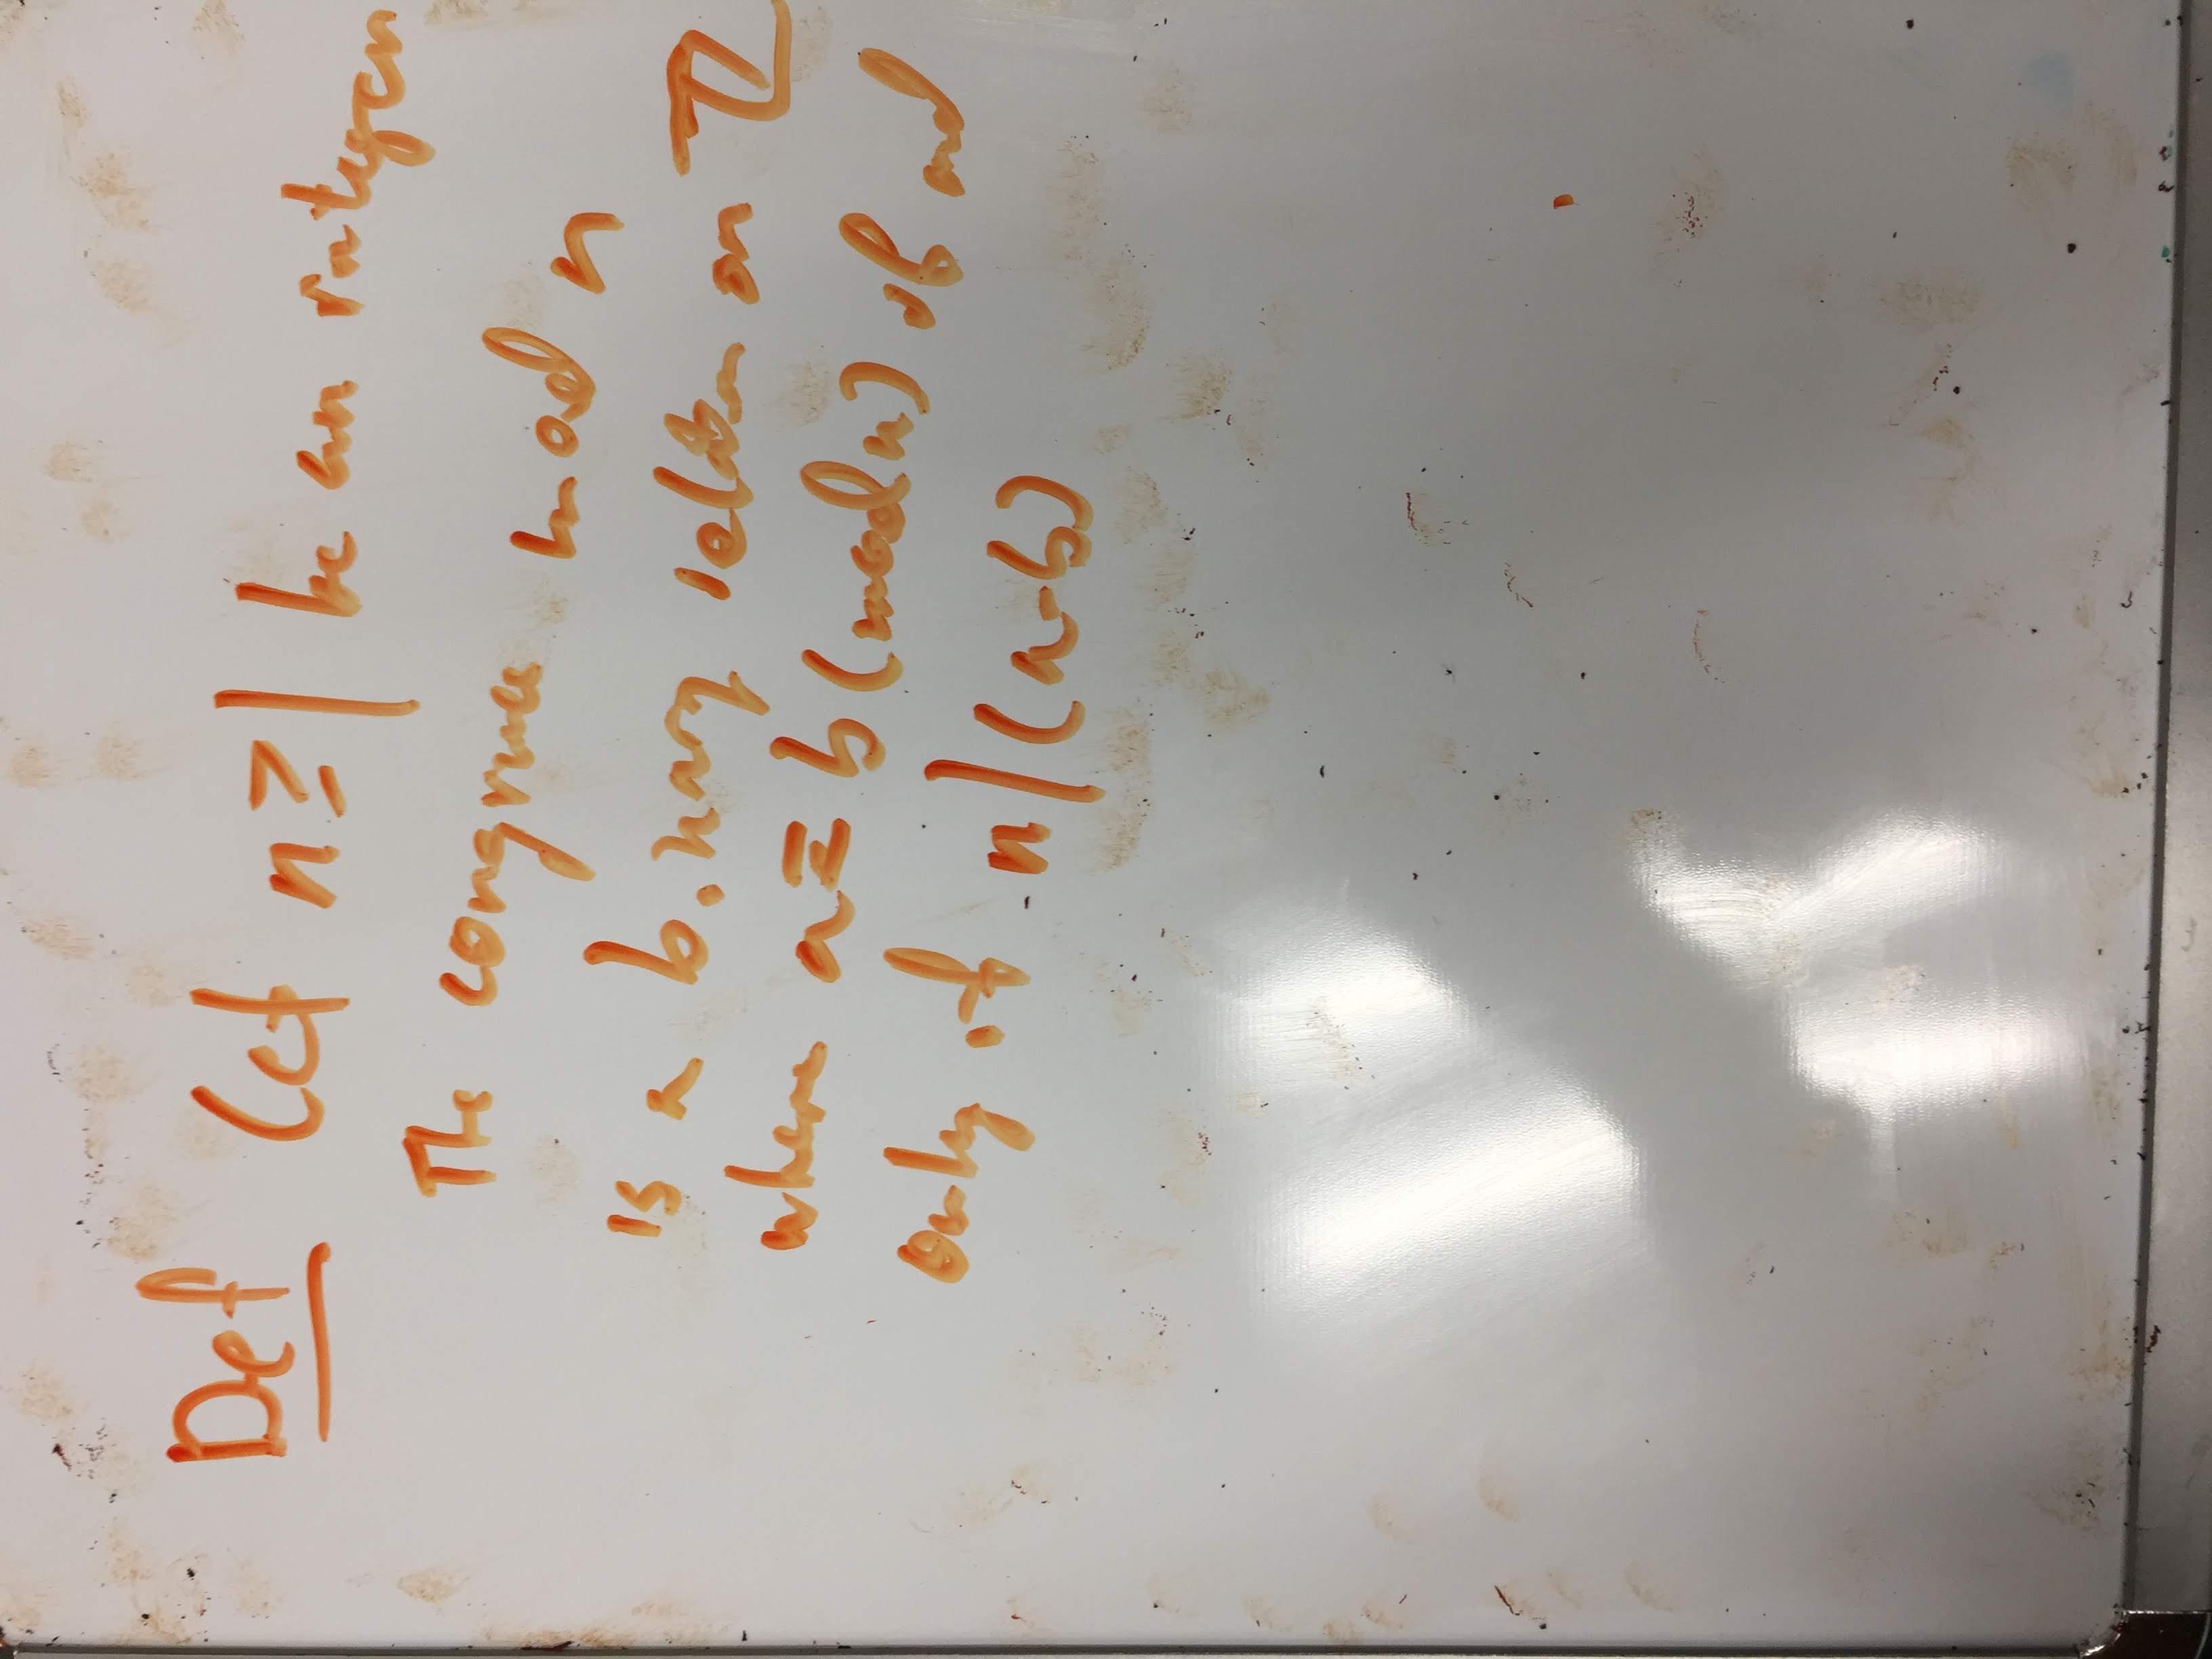 Def Let n ≥ 1 be an integer
The congruence mod n
is a binary relation on ℤ
where a ≡ b (mod n) if and
only if n | (a-b)